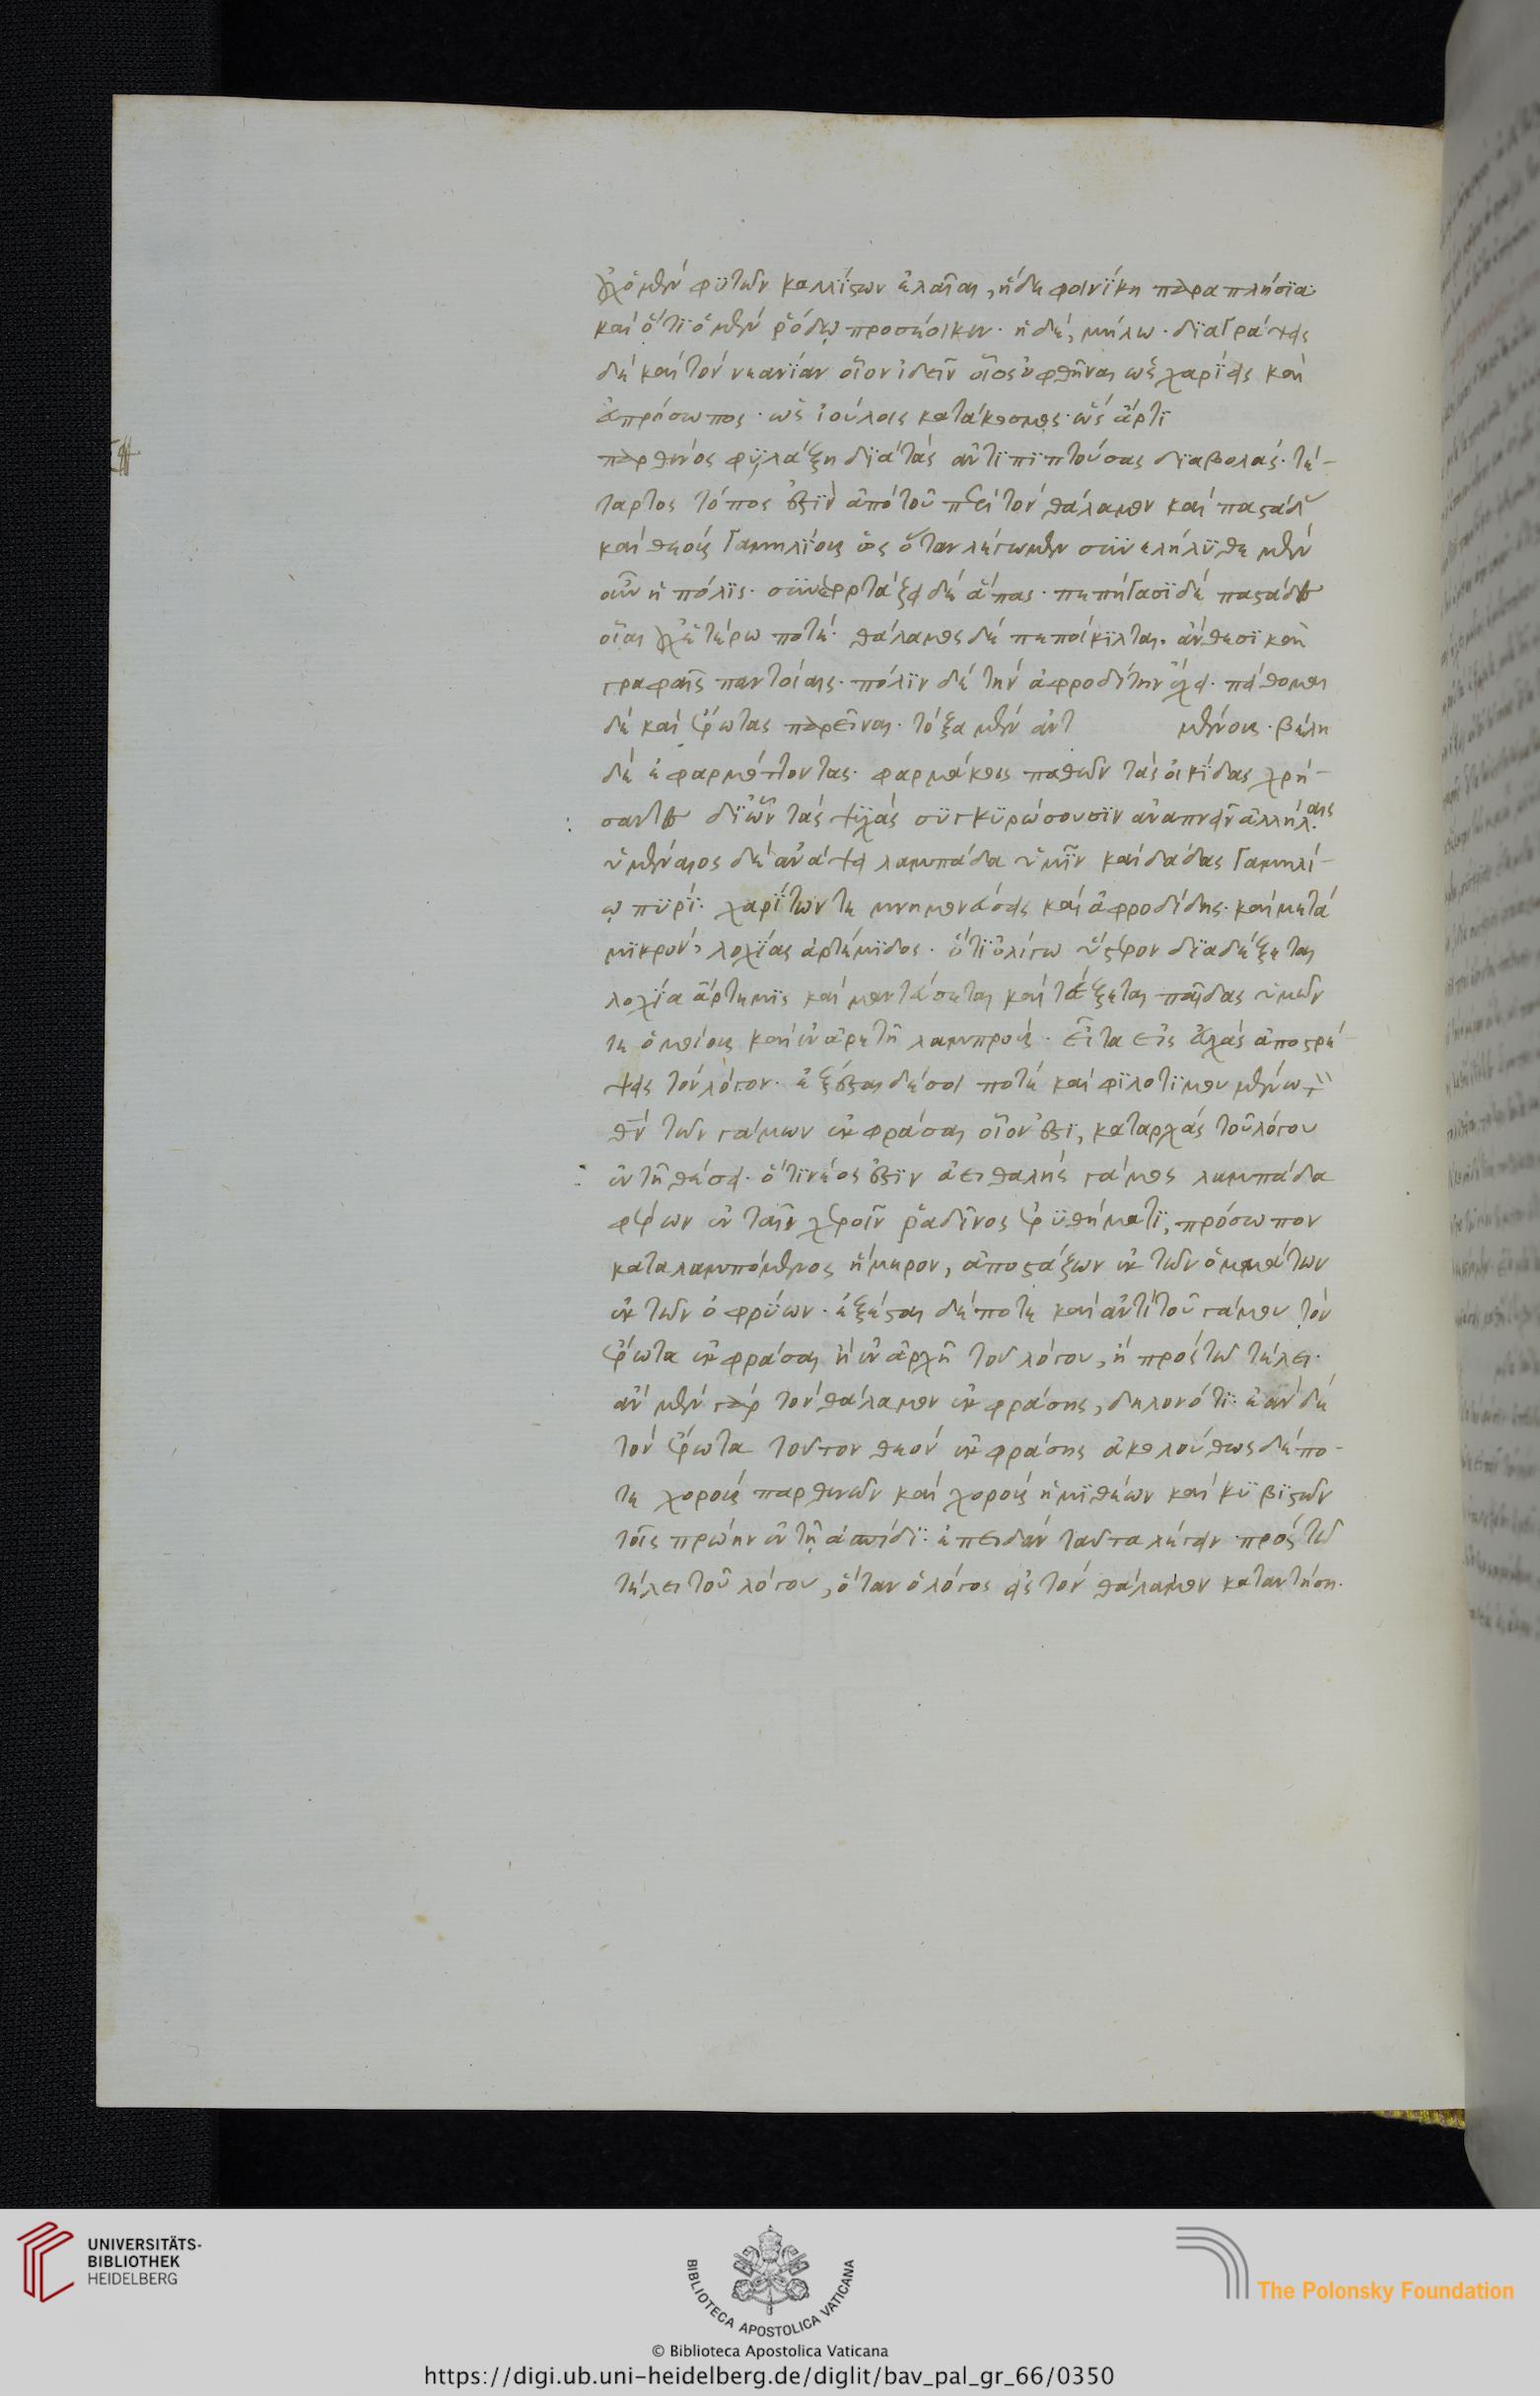 οὐχ ὁ μὲν φυτῶν καλλίστων ἐλαίαι, ἡ δὲ φοινίκη παραπλησία
καὶ ὅτι ὁ μὲν ῥόδῳ προσέοικεν· ἡ δέ, μήλω· διαγράψεις
δὲ καὶ τὸν νεανίαν οἷον ἰδεῖν οἷος ὀφθῆναι ὡς χαρίεις καὶ
ἀπρόσωπος· ὡς ἰούλοις κατάκομος· ὡς ἄρτι
παρθένος φυλάξη διὰ τὰς ἀντιπιπτούσας διαβολάς· τέ-
ταρτος τόπος ἐστὶν ἀπὸ τοῦ περὶ τὸν θάλαμον καὶ παστάδ
καὶ θεοὺς γαμηλίους ὡς ὅταν λέγωμεν συνελήλυθε μὲν
οὖν ἡ πόλις· συνεορτάζει δὲ ἅπας· πεπήγασι δὲ παστάδες
οἷαι οὐχ ἑτέρω ποτέ· θάλαμος δὲ πεποίκιλται· ἄνθεσι καὶ
γραφαῖς παντοίαις· πόλιν δὲ τὴν ἀφροδίτην ἔχει· πείθομαι
δὲ καὶ ἔρωτας παρεῖναι· τόξα μὲν ἀντ μένους· βέλη
δὲ ἐφαρμόττοντας· φαρμάκοις παθῶν τὰς ἀκίδας χρή-
σαντες δι' ὧν τὰς ψυχὰς συγκυρώσουσιν ἀναπνεῖν ἀλλήλαις
ὑμέναιος δὲ ἀνάψει λαμπάδα ὑμῖν καὶ δάδας γαμηλί-
ῳ πυρί· χαρίτων τε μνημονεύσεις καὶ ἀφροδίτης· καὶ μετὰ
μικρόν, λοχίας ἀρτέμιδος· ὅτι ὀλίγω ὕστερον διαδέξεται
λοχία ἄρτεμις καὶ μαιεύσεται καὶ τέξεται παῖδας ὑμῶν
τε ὁμοίους καὶ ἐν ἀρετῇ λαμπρούς· εἶτα εἰς εὐχὰς ἀποστρέ-
ψεις τὸν λόγον· ἐξέσται δέ σοι ποτὲ καὶ φιλοτιμουμένω τ
θεὸν τῶν γάμων ἐκφράσαι οἷον ἐστι, καταρχὰς τοῦ λόγου
ἐν τῇ θέσει· ὅτι νέος ἐστιν ἀειθαλὴς γάμος λαμπάδα
φέρων ἐν ταῖν χεροῖν ῥαδινὸς ἐρυθήματι, πρόσωπον
καταλαμπόμενος ἥμερον, ἀποστάζων ἐκ τῶν ὀμμάτων
ἐκ τῶν ὀφρύων· ἐξέσται δέ ποτε καὶ ἀντὶ τοῦ γάμου τὸν
ἔρωτα ἐκφράσαι ἢ ἐν ἀρχῇ τοῦ λόγου, ἢ πρὸς τῶ τέλει·
ἂν μὲν γὰρ τὸν θάλαμον ἐκφράσης, δηλονότι· ἐὰν δὲ
τὸν ἔρωτα τοῦτον θεὸν ἐκφράσης ἀκολούθως δέ πο-
τε χοροὺς παρθένων καὶ χοροὺς ἡμιθέων καὶ κυβιστῶν
τοῖς πρώην ἐν τῇ ἀσπίδι· ἐπειδὰν ταῦτα λέγειν πρὸς τῶ
τέλει τοῦ λόγου, ὅταν ὁ λόγος εἰς τὸν θάλαμον καταντήση·
UNIVERSITÄTS-
BIBLIOTHEK
HEIDELBERG
BIBLIOTECA APOSTOLICA VATICANA
The Polonsky Foundation
© Biblioteca Apostolica Vaticana
https://digi.ub.uni-heidelberg.de/diglit/bav_pal_gr_66/0350